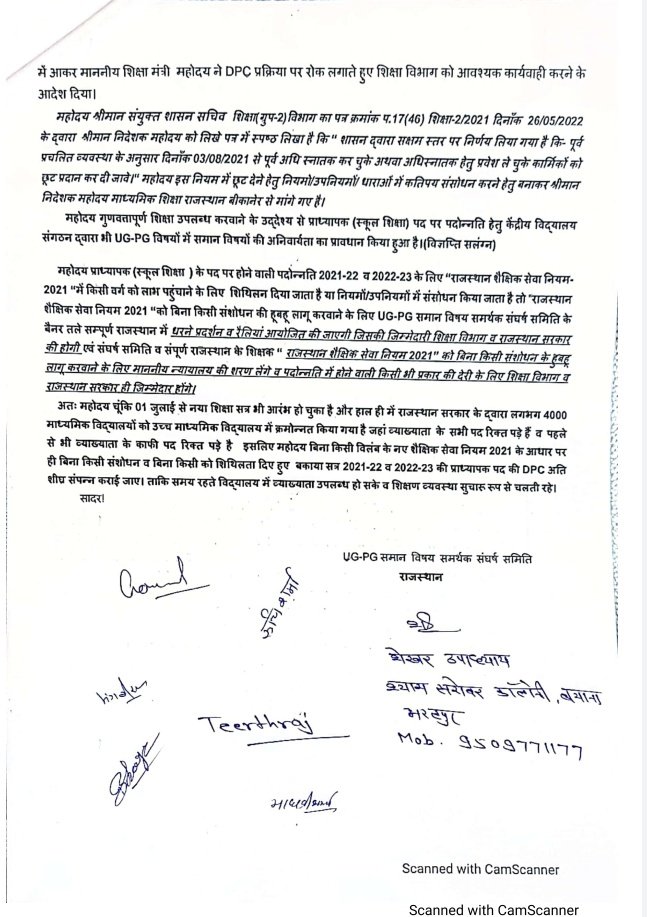 में आकर माननीय शिक्षा मंत्री महोदय ने DPC प्रक्रिया पर रोक लगाते हुए शिक्षा विभाग को आवश्यक कार्यवाही करने के
आदेश दिया।
महोदय श्रीमान संयुक्त शासन सचिव शिक्षा(ग्रुप-2)विभाग का पत्र क्रमांक प.17(46) शिक्षा-2/2021 दिनाँक 26/05/2022
के द्वारा श्रीमान निदेशक महोदय को लिखे पत्र में स्पष्ठ लिखा है कि" शासन द्वारा सक्षम स्तर पर निर्णय लिया गया है कि- पूर्व
प्रचलित व्यवस्था के अनुसार दिनाँक 03/08/2021 से पूर्व अधि स्नातक कर चुके अथवा अधिस्नातक हेतु प्रवेश ले चुके कार्मिकों को
छूट प्रदान कर दी जावे।" महोदय इस नियम में छूट देने हेतु नियमो/उपनियमों/ धाराओं में कतिपय संसोधन करने हेतु बनाकर श्रीमान
निदेशक महोदय माध्यमिक शिक्षा राजस्थान बीकानेर से मांगे गए है।
महोदय गुणवत्तापूर्ण शिक्षा उपलब्ध करवाने के उद्देश्य से प्राध्यापक (स्कूल शिक्षा) पद पर पदोन्नति हेतु केंद्रीय विद्यालय
संगठन द्वारा भी UG-PG विषयों में समान विषयों की अनिवार्यता का प्रावधान किया हुआ है।(विज्ञप्ति सलंग्न)
महोदय प्राध्यापक (स्कूल शिक्षा ) के पद पर होने वाली पदोन्नति 2021-22 व 2022-23 के लिए "राजस्थान शैक्षिक सेवा नियम-
2021 "में किसी वर्ग को लाभ पहुंचाने के लिए शिथिलन दिया जाता है या नियमों/उपनियमों में संसोधन किया जाता है तो "राजस्थान
शैक्षिक सेवा नियम 2021 "को बिना किसी संशोधन की हूबहू लागू करवाने के लिए UG-PG समान विषय समर्थक संघर्ष समिति के
बैनर तले सम्पूर्ण राजस्थान में धरने प्रदर्शन व रैलियां आयोजित की जाएगी जिसकी जिम्मेदारी शिक्षा विभाग व राजस्थान सरकार
की होगी एवं संघर्ष समिति व संपूर्ण राजस्थान के शिक्षक " राजस्थान शैक्षिक सेवा नियम 2021" को बिना किसी संशोधन के हुबहु
लागू करवाने के लिए माननीय न्यायालय की शरण लेंगे व पदोन्नति में होने वाली किसी भी प्रकार की देरी के लिए शिक्षा विभाग व
राजस्थान सरकार ही जिम्मेदार होंगे।
अतः महोदय चूंकि 01 जुलाई से नया शिक्षा सत्र भी आरंभ हो चुका है और हाल ही में राजस्थान सरकार के द्वारा लगभग 4000
माध्यमिक विद्यालयों को उच्च माध्यमिक विद्यालय में क्रमोन्नत किया गया है जहां व्याख्याता के सभी पद रिक्त पड़े हैं व पहले
से भी व्याख्याता के काफी पद रिक्त पड़े है इसलिए महोदय बिना किसी विलंब के नए शैक्षिक सेवा नियम 2021 के आधार पर
ही बिना किसी संशोधन व बिना किसी को शिथिलता दिए हुए बकाया सत्र 2021-22 व 2022-23 की प्राध्यापक पद की DPC अति
शीघ्र संपन्न कराई जाए। ताकि समय रहते विद्यालय में व्याख्याता उपलब्ध हो सके व शिक्षण व्यवस्था सुचारू रूप से चलती रहे।
सादर!
UG-PG समान विषय समर्थक संघर्ष समिति
राजस्थान
शेखर उपाध्याय
श्याम सरोवर कॉलोनी, बयाना
भरतपुर
Mob. 9509771177
Teerthraj
Scanned with CamScanner
Scanned with CamScanner